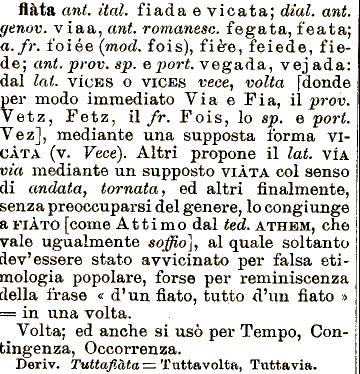 fiàta ant. ital. fiada e vicata; dial. ant.
genov. viaa, ant. romanesc. fegata, feata;
a. fr. foiée (mod. fois), fière, feiede, fie-
de; ant. prov. sp. e port. vegada, vejada:
dal lat. VÍCES o VICES vece, volta [donde
per modo immediato Via e Fia, il prov.
Vetz, Fetz, il fr. Fois, lo sp. e port.
Vez], mediante una supposta forma VI-
CÀTA (v. Vece). Altri propone il lat. VÍA
via mediante un supposto VIÀTA col senso
di andata, tornata, ed altri finalmente,
senza preoccuparsi del genere, lo congiunge
a FIÀTO [come Attimo dal ted. ATHEM, che
vale ugualmente soffio], al quale soltanto
dev'essere stato avvicinato per falsa eti-
mologia popolare, forse per reminiscenza
della frase « d'un fiato, tutto d'un fiato »
= in una volta.
Volta; ed anche si usò per Tempo, Con-
tingenza, Occorrenza.
Deriv. Tuttafiàta = Tuttavolta, Tuttavia.